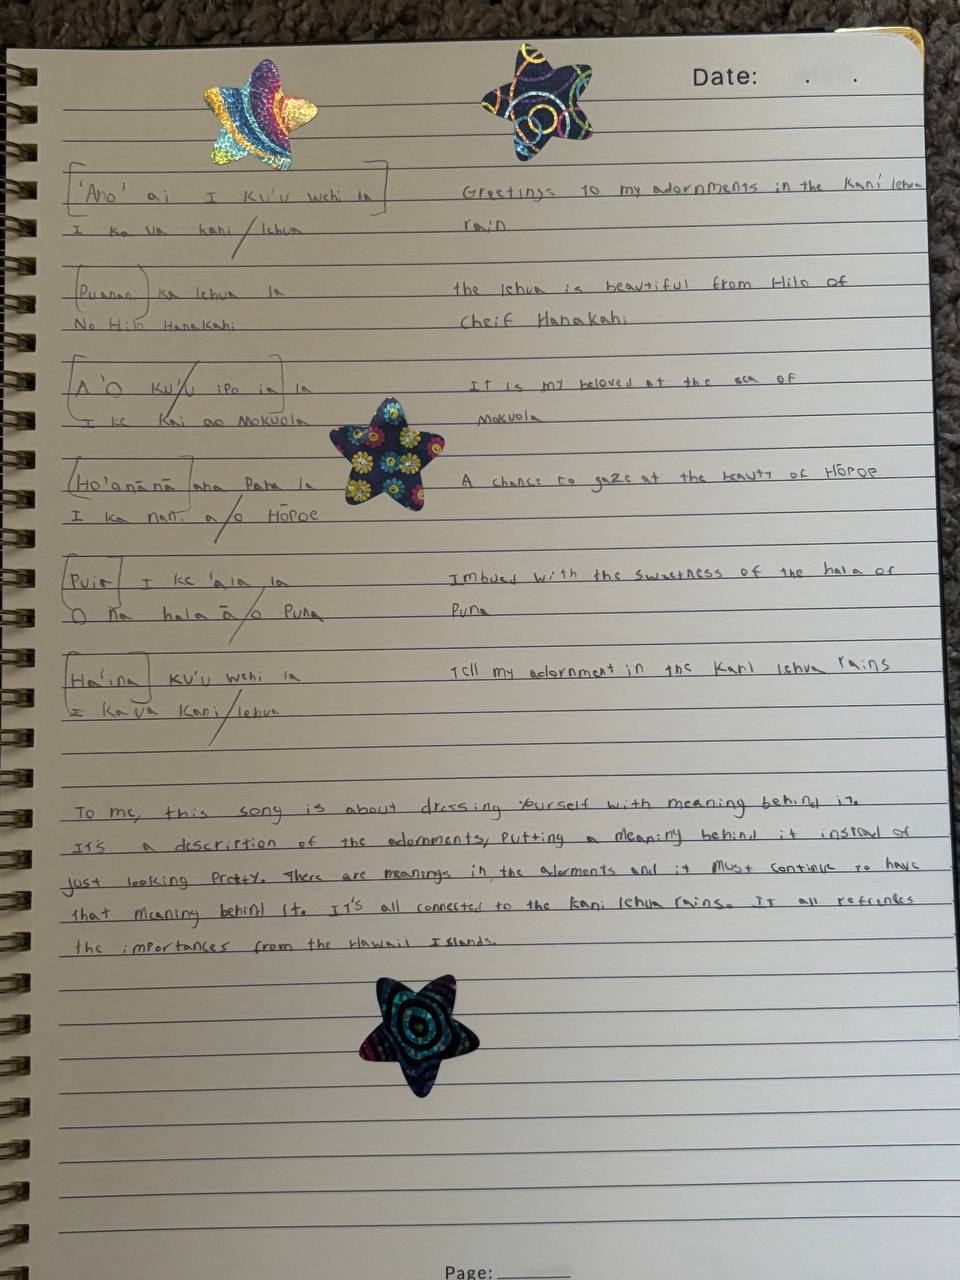 Date: . .
'Ano' ai I Ku'u wehi la
Greetings to my adornments in the Kani lehua
I ka ua kani / lehua
rain
Puanani ka lehua la
the lehua is beautiful from Hilo of
No Hilo Hanakahi
Cheif Hanakahi
A 'O Ku'u ipo ia la
It is my beloved at the sea of
I ke Kai ao Mokuola
Mokuola
Ho'onānā ana Paha la
A chance to gaze at the beauty of Hōpoe
I ka nani a/o Hōpoe
Puia I ke 'ala la
Imbued with the sweetness of the hala of
O na hala ā/o Puna
Puna
Ha'ina Ku'u wehi la
Tell my adornment in the Kani lehua rains
I Ka ūa Kani/lehua
To me, this song is about dressing yourself with meaning behind it.
It's a description of the adornments, putting a meaning behind it instead of
just looking Pretty. There are meanings in the adorments and it must continue to have
that meaning behind it. It's all connected to the kani lehua rains. It all
the importances from the Hawaii Islands.
Page: